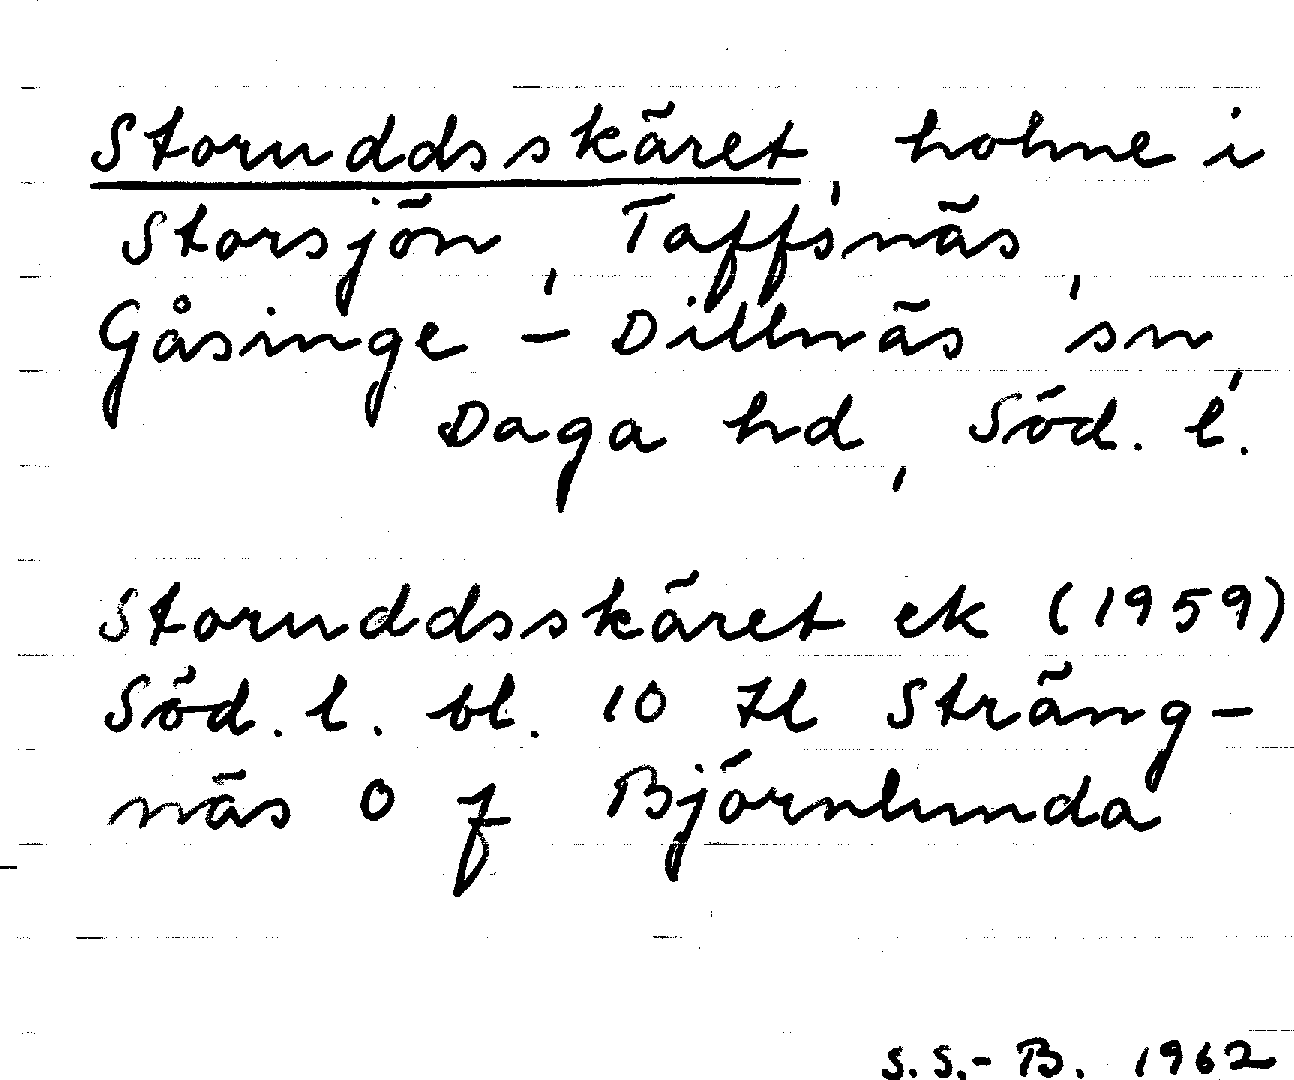 Storuddsskäret, holme i
Storsjön, Taffsnäs,
Gåsinge - Dillnäs sn,
Daga hd, Söd. l.
Storuddsskäret ek (1959)
Söd. l. bl. 10 tl Sträng-
näs O f Björnlunda
S.S.-B. 1962